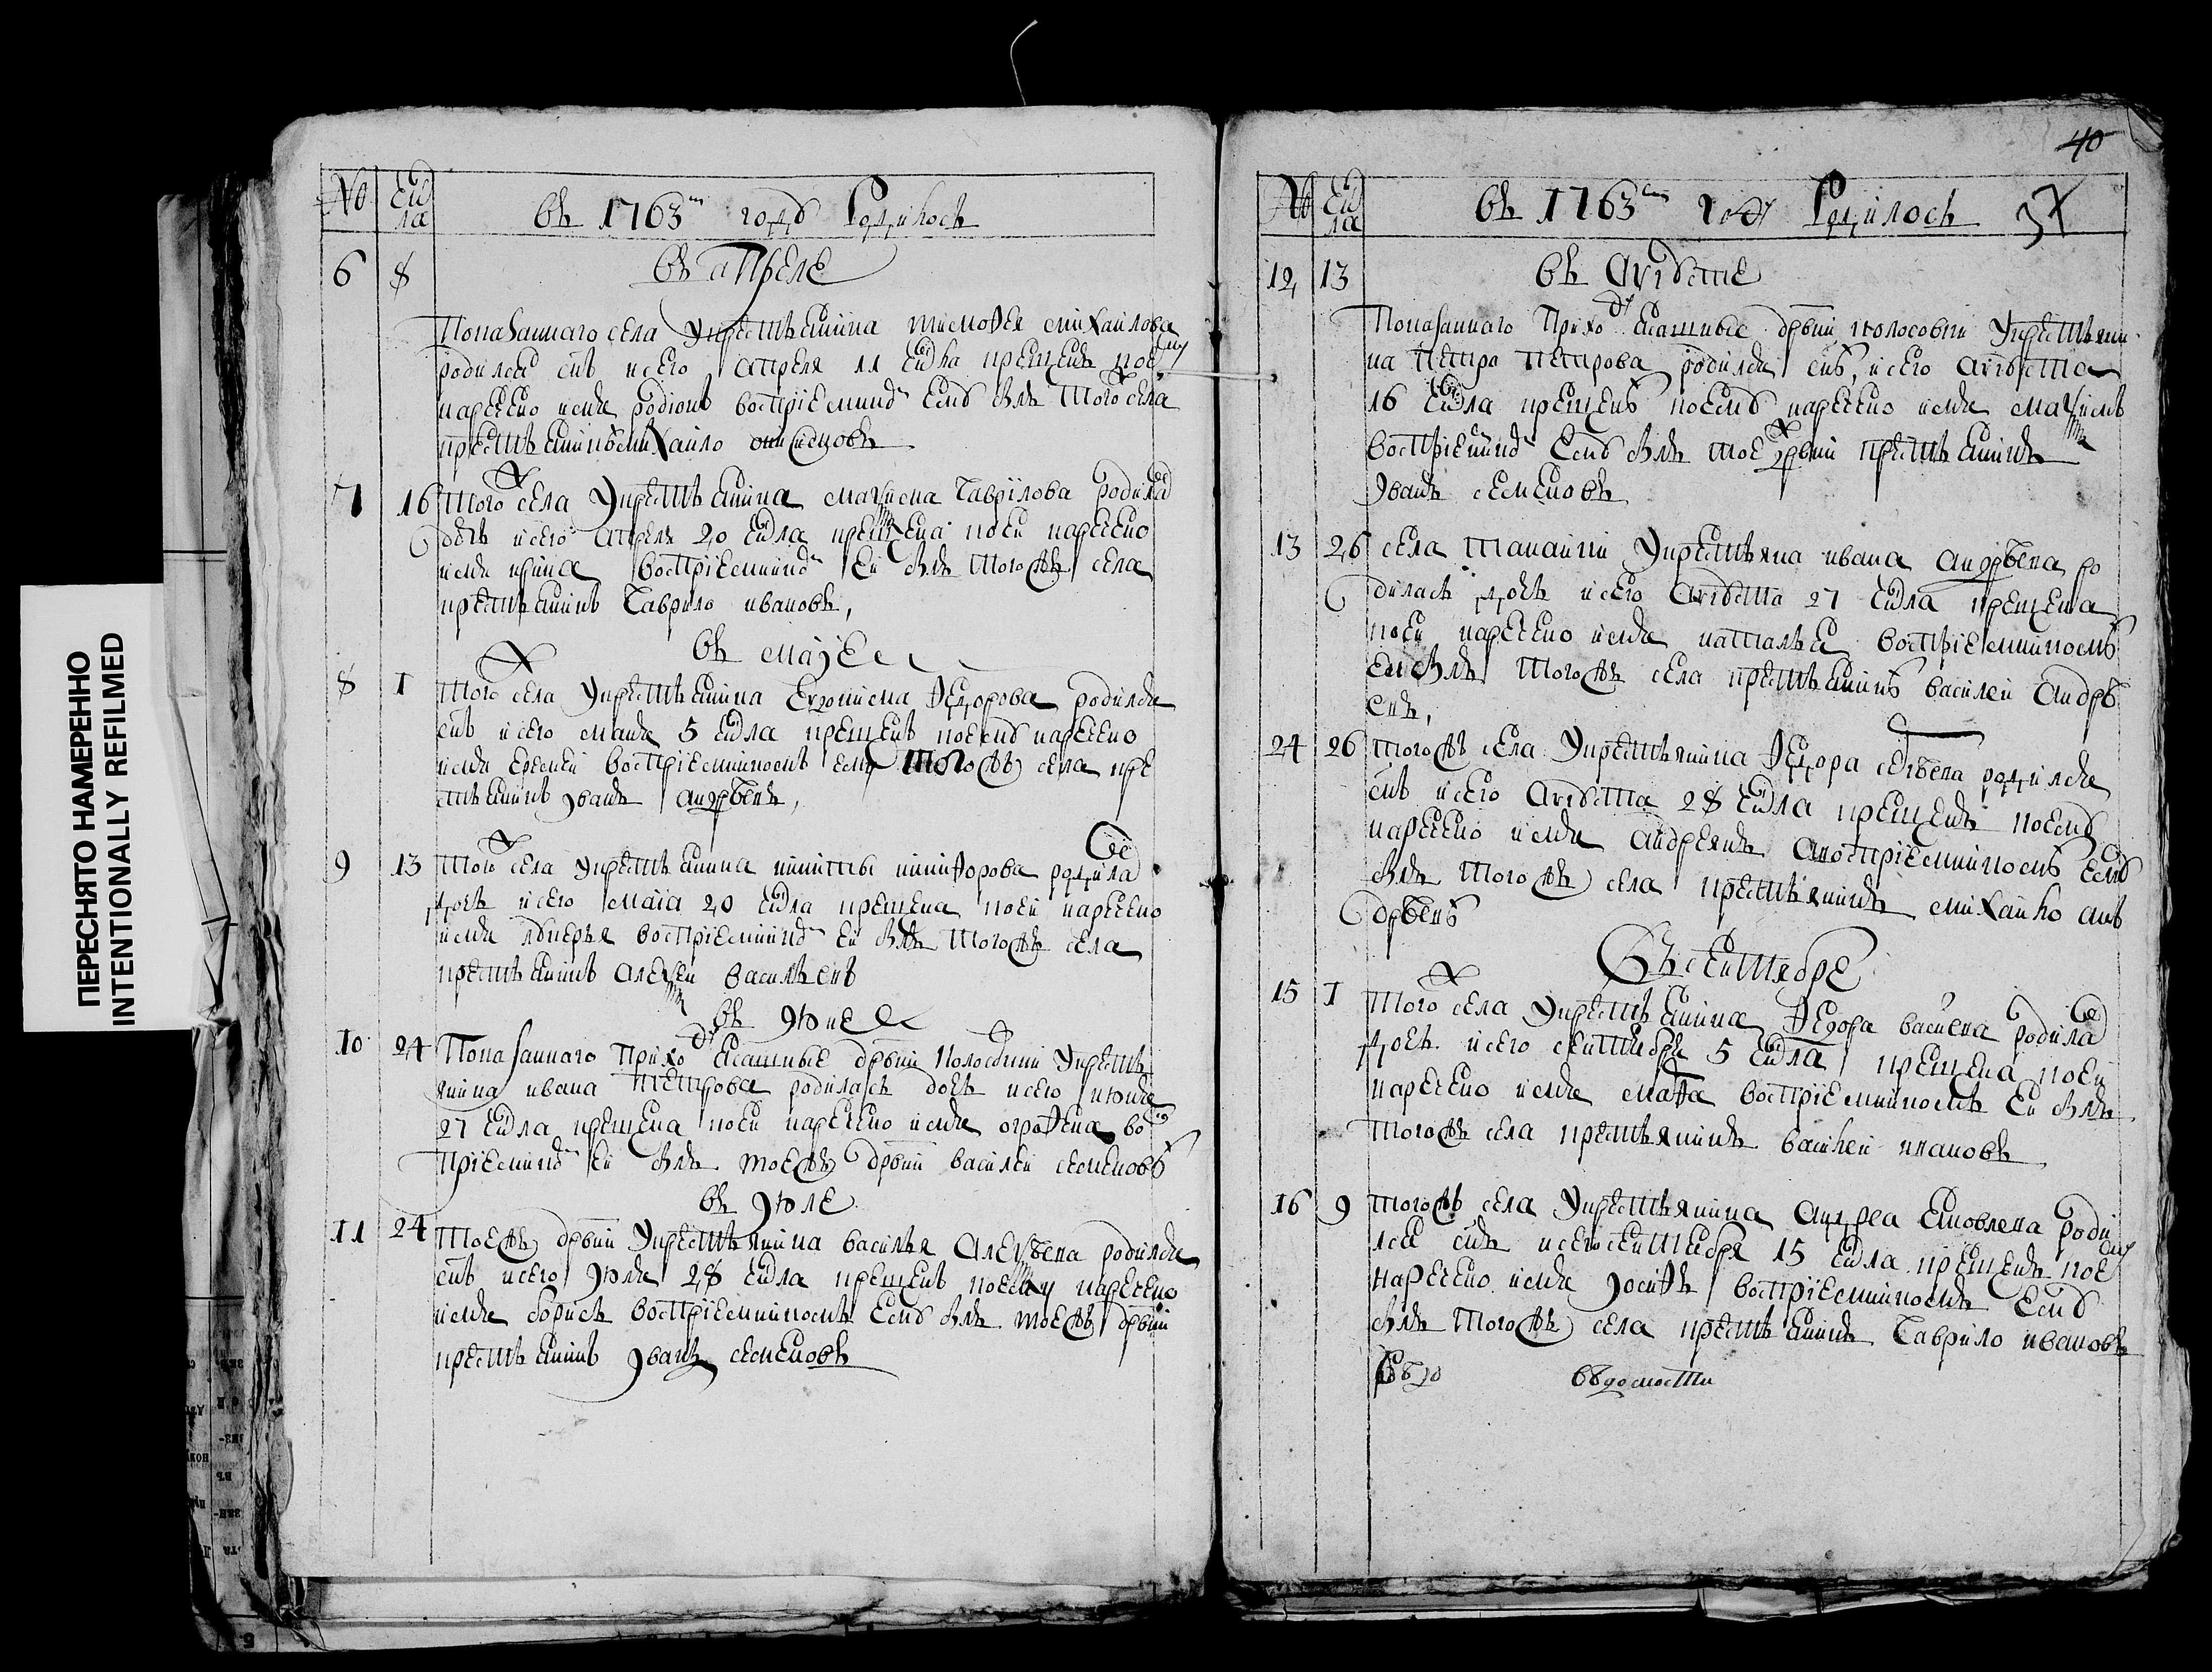 ПЕРЕСНЯТО НАМЕРЕННО
INTENTIONALLY REFILMED
№ Числа
въ 1763м году Родилось
6 8 въ апреле
Показаннаго села у крестьянина тимофея михаилова
родился снъ и сего апреля 11 числа крещенъ коему
наречено имя родионъ восприемникъ ему былъ того села
крестьянинъ михаило
7 16 того села у крестьянина максима гаврилова родилась
дочь и сего апреля 20 числа крещена коеи наречено
имя ирина восприемникъ еи былъ тогожъ села
крестьянинъ гаврило ивановъ
въ маие
8 1 того села у крестьянина федорова родился
снъ и сего маия 5 числа крещенъ коему наречено
имя еремеи восприемникомъ ему былъ тогожъ села кре
стьянинъ иванъ андреевъ
9 13 того села у крестьянина никиты никифорова родилась
дочь и сего маиа 20 числа крещена коеи наречено
имя восприемникъ еи былъ тогожъ села
крестьянинъ алексеи васильевъ
въ июне
10 24 Показаннаго приходу деревни у кресть
янина ивана петрова родилась дочь и сего июня
27 числа крещена коеи наречено имя огрофена вос
приемникъ еи былъ тоежъ деревни василеи семеновъ
въ июле
11 24 тоежъ деревни у крестьянина василья алексеева родился
снъ и сего июля 28 числа крещенъ коему наречено
имя борисъ восприемникомъ ему былъ тоежъ деревни
крестьянинъ иванъ семеновъ
40
№ Числа
въ 1763м году Родилось 37
12 13 въ августе
Показаннаго приходу деревни у крестьяни
на петра петрова родился снъ, и сего августа
16 числа крещенъ коему наречено имя максимъ
восприемникъ ему былъ тоежъ деревни крестьянинъ
иванъ семеновъ
13 26 села у крестьяна ивана андреева ро
дилась дочь и сего августа 27 числа крещена
коеи наречено имя наталья восприемникомъ
еи былъ тогожъ села крестьянинъ василеи андре
евъ,
24 26 тогожъ села у крестьянина федора родился
снъ и сего августа 28 числа крещенъ коему
наречено имя андреянъ а восприемникомъ ему
былъ тогожъ села крестьянинъ михаило ан
дреевъ
Въ сентябре
15 1 того села у крестьянина федора родилась
дочь и сего сентября 5 числа крещена коеи
наречено имя восприемникомъ еи былъ
тогожъ села крестьянинъ василеи ивановъ
16 9 тогожъ села у крестьянина андрея яковлева роди
лся снъ и сего сентября 15 числа крещенъ коему
наречено имя иосифъ восприемникомъ ему
былъ тогожъ села крестьянинъ гаврило ивановъ
ведомости